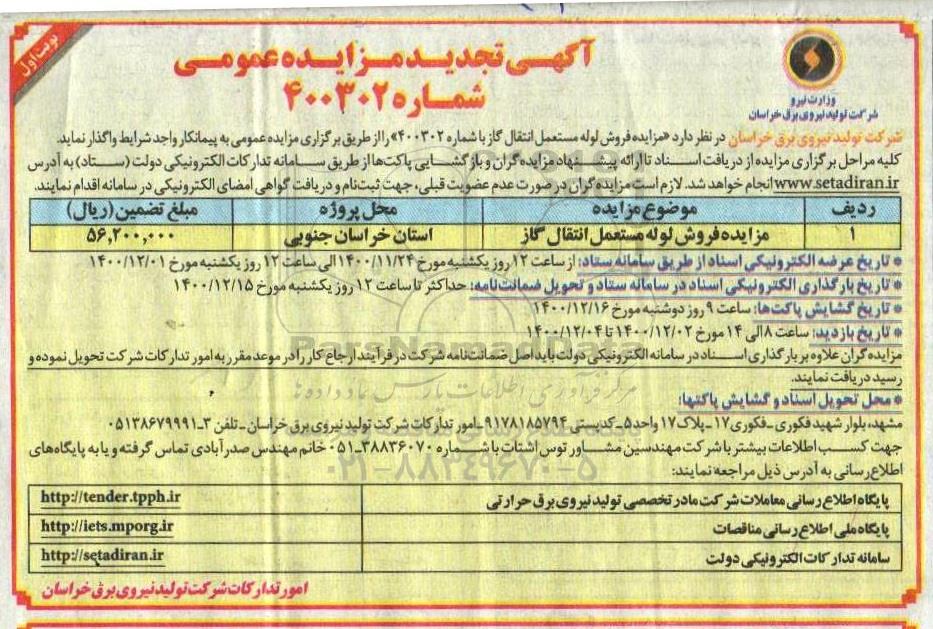 نوبت اول
آگهی تجدید مزایده عمومی
شماره ۴۰۰۳۰۲
وزارت نیرو
شرکت تولید نیروی برق خراسان
شرکت تولید نیروی برق خراسان در نظر دارد «مزایده فروش لوله مستعمل انتقال گاز با شماره ۴۰۰۳۰۲» را از طریق برگزاری مزایده عمومی به پیمانکار واجد شرایط واگذار نماید.
کلیه مراحل برگزاری مزایده از دریافت اسناد تا ارائه پیشنهاد مزایده گران و بازگشایی پاکت‌ها از طریق سامانه تدارکات الکترونیکی دولت (ستاد) به آدرس
www.setadiran.ir انجام خواهد شد. لازم است مزایده گران در صورت عدم عضویت قبلی، جهت ثبت‌نام و دریافت گواهی امضای الکترونیکی در سامانه اقدام نمایند.
ردیف موضوع مزایده محل پروژه مبلغ تضمین (ریال)
۱ مزایده فروش لوله مستعمل انتقال گاز استان خراسان جنوبی ۵۶,۲۰۰,۰۰۰
* تاریخ عرضه الکترونیکی اسناد از طریق سامانه ستاد: از ساعت ۱۲ روز یکشنبه مورخ ۱۴۰۰/۱۱/۲۴ الی ساعت ۱۲ روز یکشنبه مورخ ۱۴۰۰/۱۲/۰۱
* تاریخ بارگذاری الکترونیکی اسناد در سامانه ستاد و تحویل ضمانت‌نامه: حداکثر تا ساعت ۱۲ روز یکشنبه مورخ ۱۴۰۰/۱۲/۱۵
* تاریخ گشایش پاکت‌ها: ساعت ۹ روز دوشنبه مورخ ۱۴۰۰/۱۲/۱۶
* تاریخ بازدید: ساعت ۸ الی ۱۴ مورخ ۱۴۰۰/۱۲/۰۲ تا ۱۴۰۰/۱۲/۰۴
مزایده گران علاوه بر بارگذاری اسناد در سامانه الکترونیکی دولت باید اصل ضمانت‌نامه شرکت در فرآیند ارجاع کار را در موعد مقرر به امور تدارکات شرکت تحویل نموده و
رسید دریافت نمایند.
* محل تحویل اسناد و گشایش پاکتها:
مشهد، بلوار شهید فکوری - فکوری ۱۷ - پلاک ۱۷ واحد ۵ - کدپستی ۹۱۷۸۱۸۵۷۹۴ - امور تدارکات شرکت تولید نیروی برق خراسان - تلفن ۳-۰۵۱۳۸۶۷۹۹۹۱
جهت کسب اطلاعات بیشتر با شرکت مهندسین مشاور توس اشتات با شماره ۳۸۸۳۶۰۷۰-۰۵۱ خانم مهندس صدرآبادی تماس گرفته و یا به پایگاه‌های
اطلاع رسانی به آدرس ذیل مراجعه نمایند:
پایگاه اطلاع رسانی معاملات شرکت مادر تخصصی تولید نیروی برق حرارتی http://tender.tpph.ir
پایگاه ملی اطلاع رسانی مناقصات http://iets.mporg.ir
سامانه تدارکات الکترونیکی دولت http://setadiran.ir
امور تدارکات شرکت تولید نیروی برق خراسان
ParsNamadData
مرکز فرآوری اطلاعات پارس نماد داده‌ها
۰۲۱-۸۸۳۴۹۶۷۰-۵